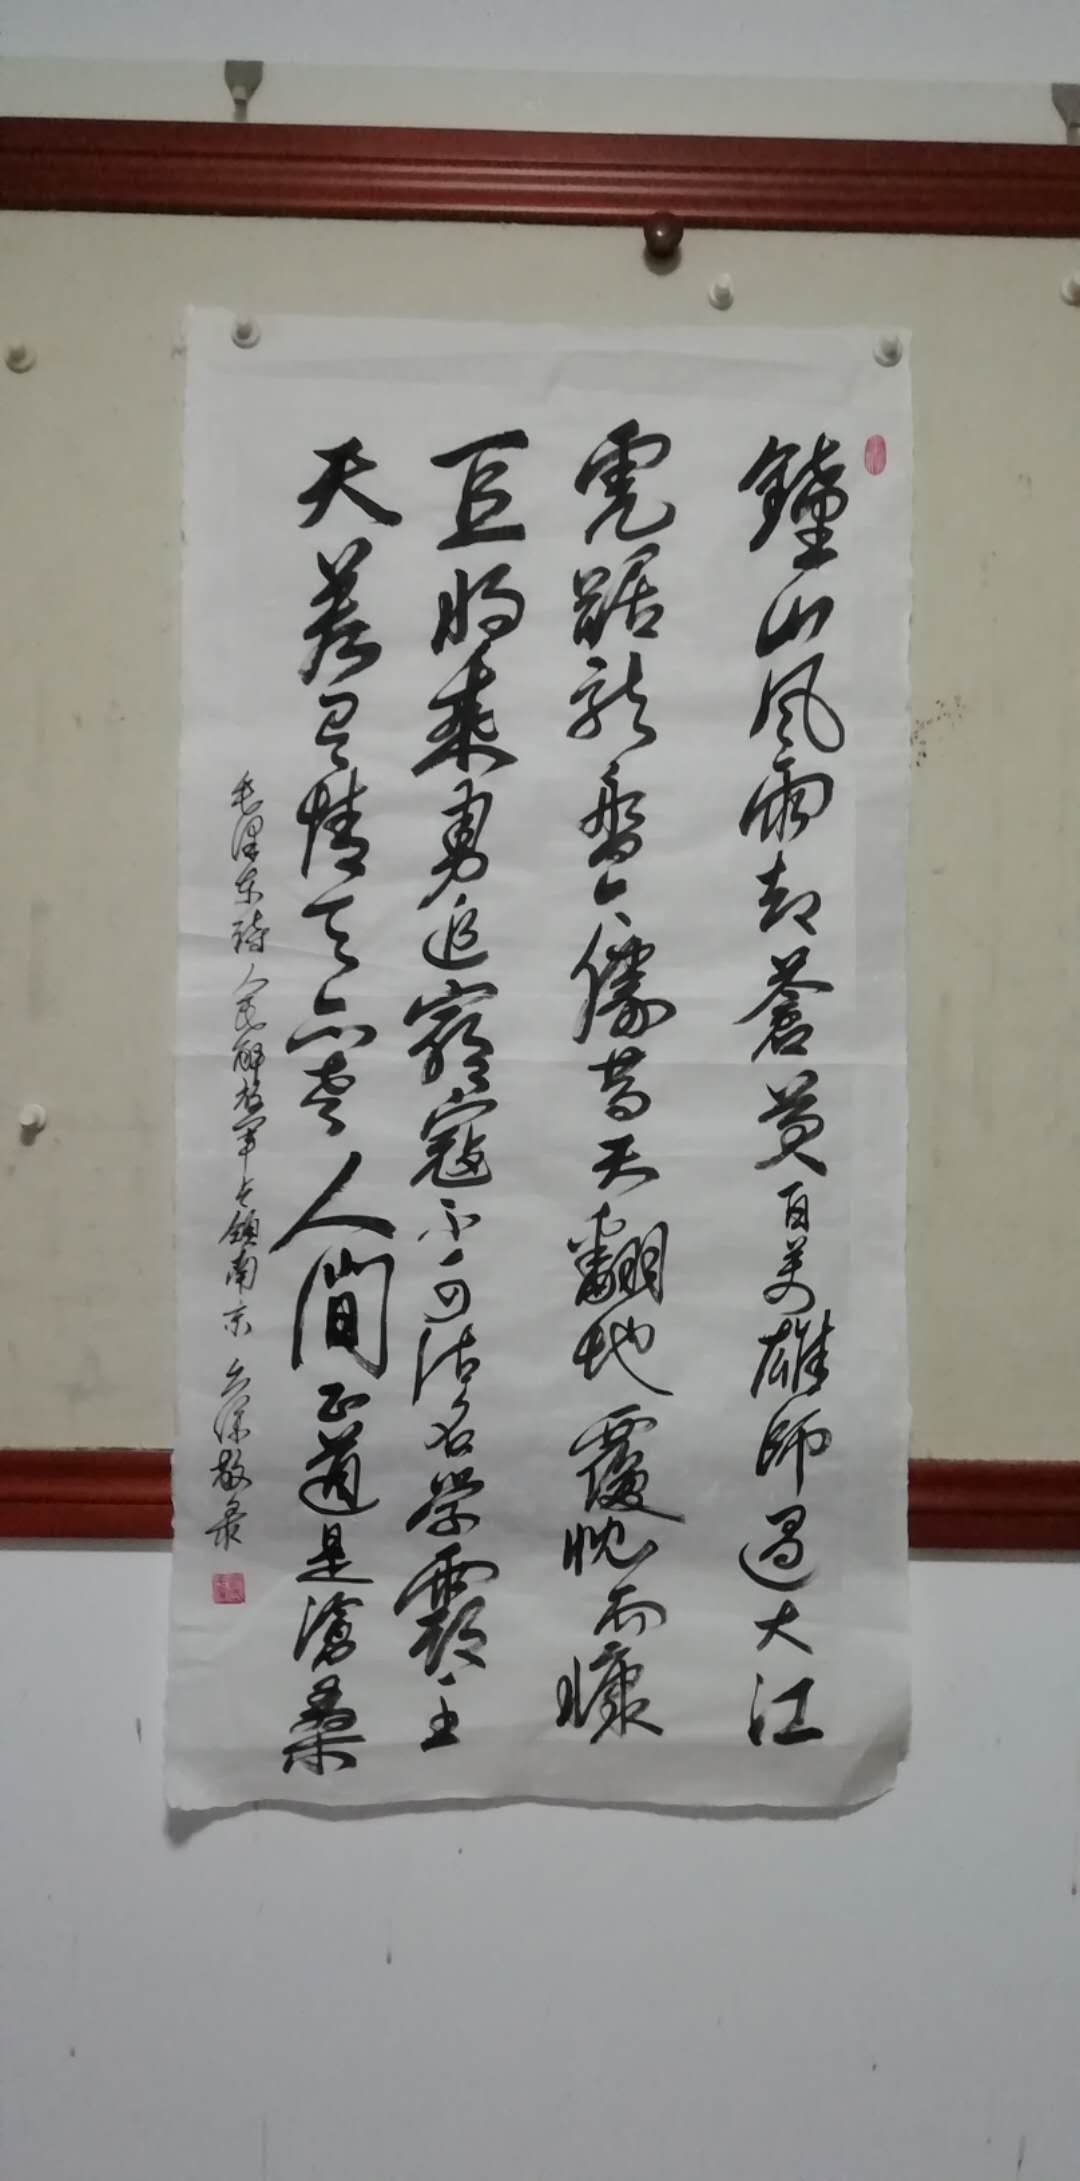 鐘山風雨起蒼黃百萬雄師過大江
虎踞龍盤今勝昔天翻地覆慨而慷
宜將乘勇追窮寇不可沽名學霸王
天若有情天亦老人間正道是滄桑
毛澤東詩人民解放軍占領南京 敬录